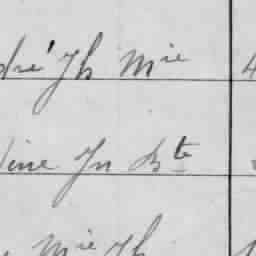 dré Jh Mie 4
line Jn Bte
Mie Jh